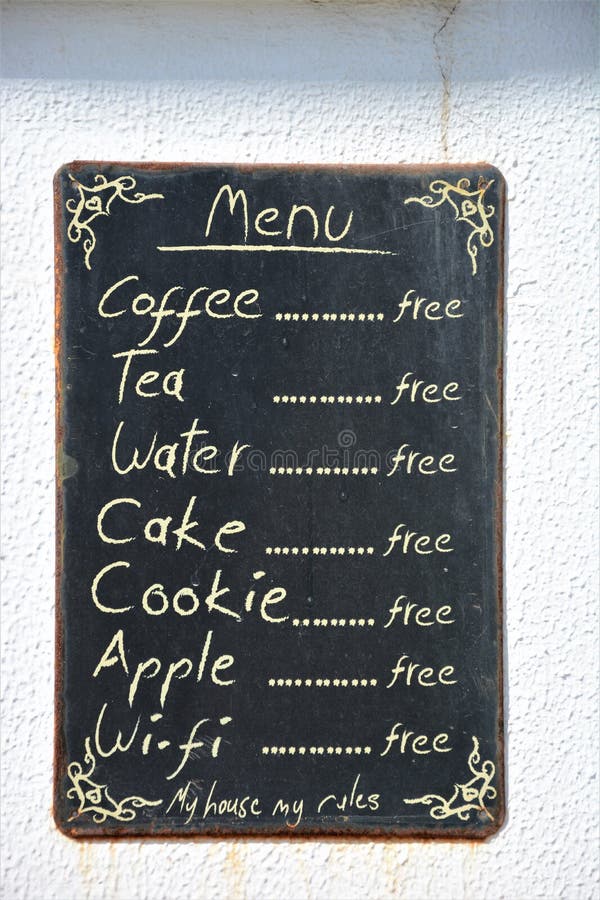 Menu
Coffee ............ free
Tea ............ free
Water ............ free
Cake ............ free
Cookie......... free
Apple ............ free
Wi-fi ............ free
My house my rules
dreamstime